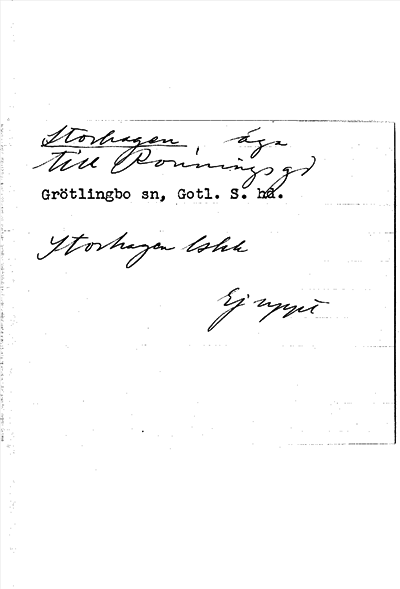 Storhagen, äga
till Ronnings gd
Grötlingbo sn, Gotl. S. hd.
Storhagen lskk
Ej uppt